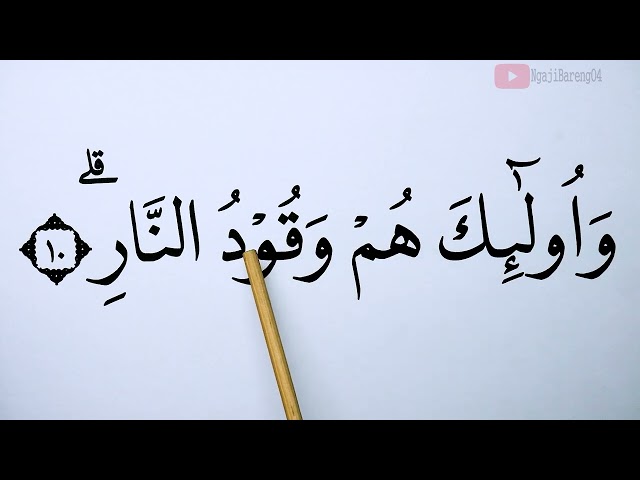 NgajiBareng04
وَاُولٰۤىِٕكَ هُمْ وَقُوْدُ النَّارِۗ ١٠